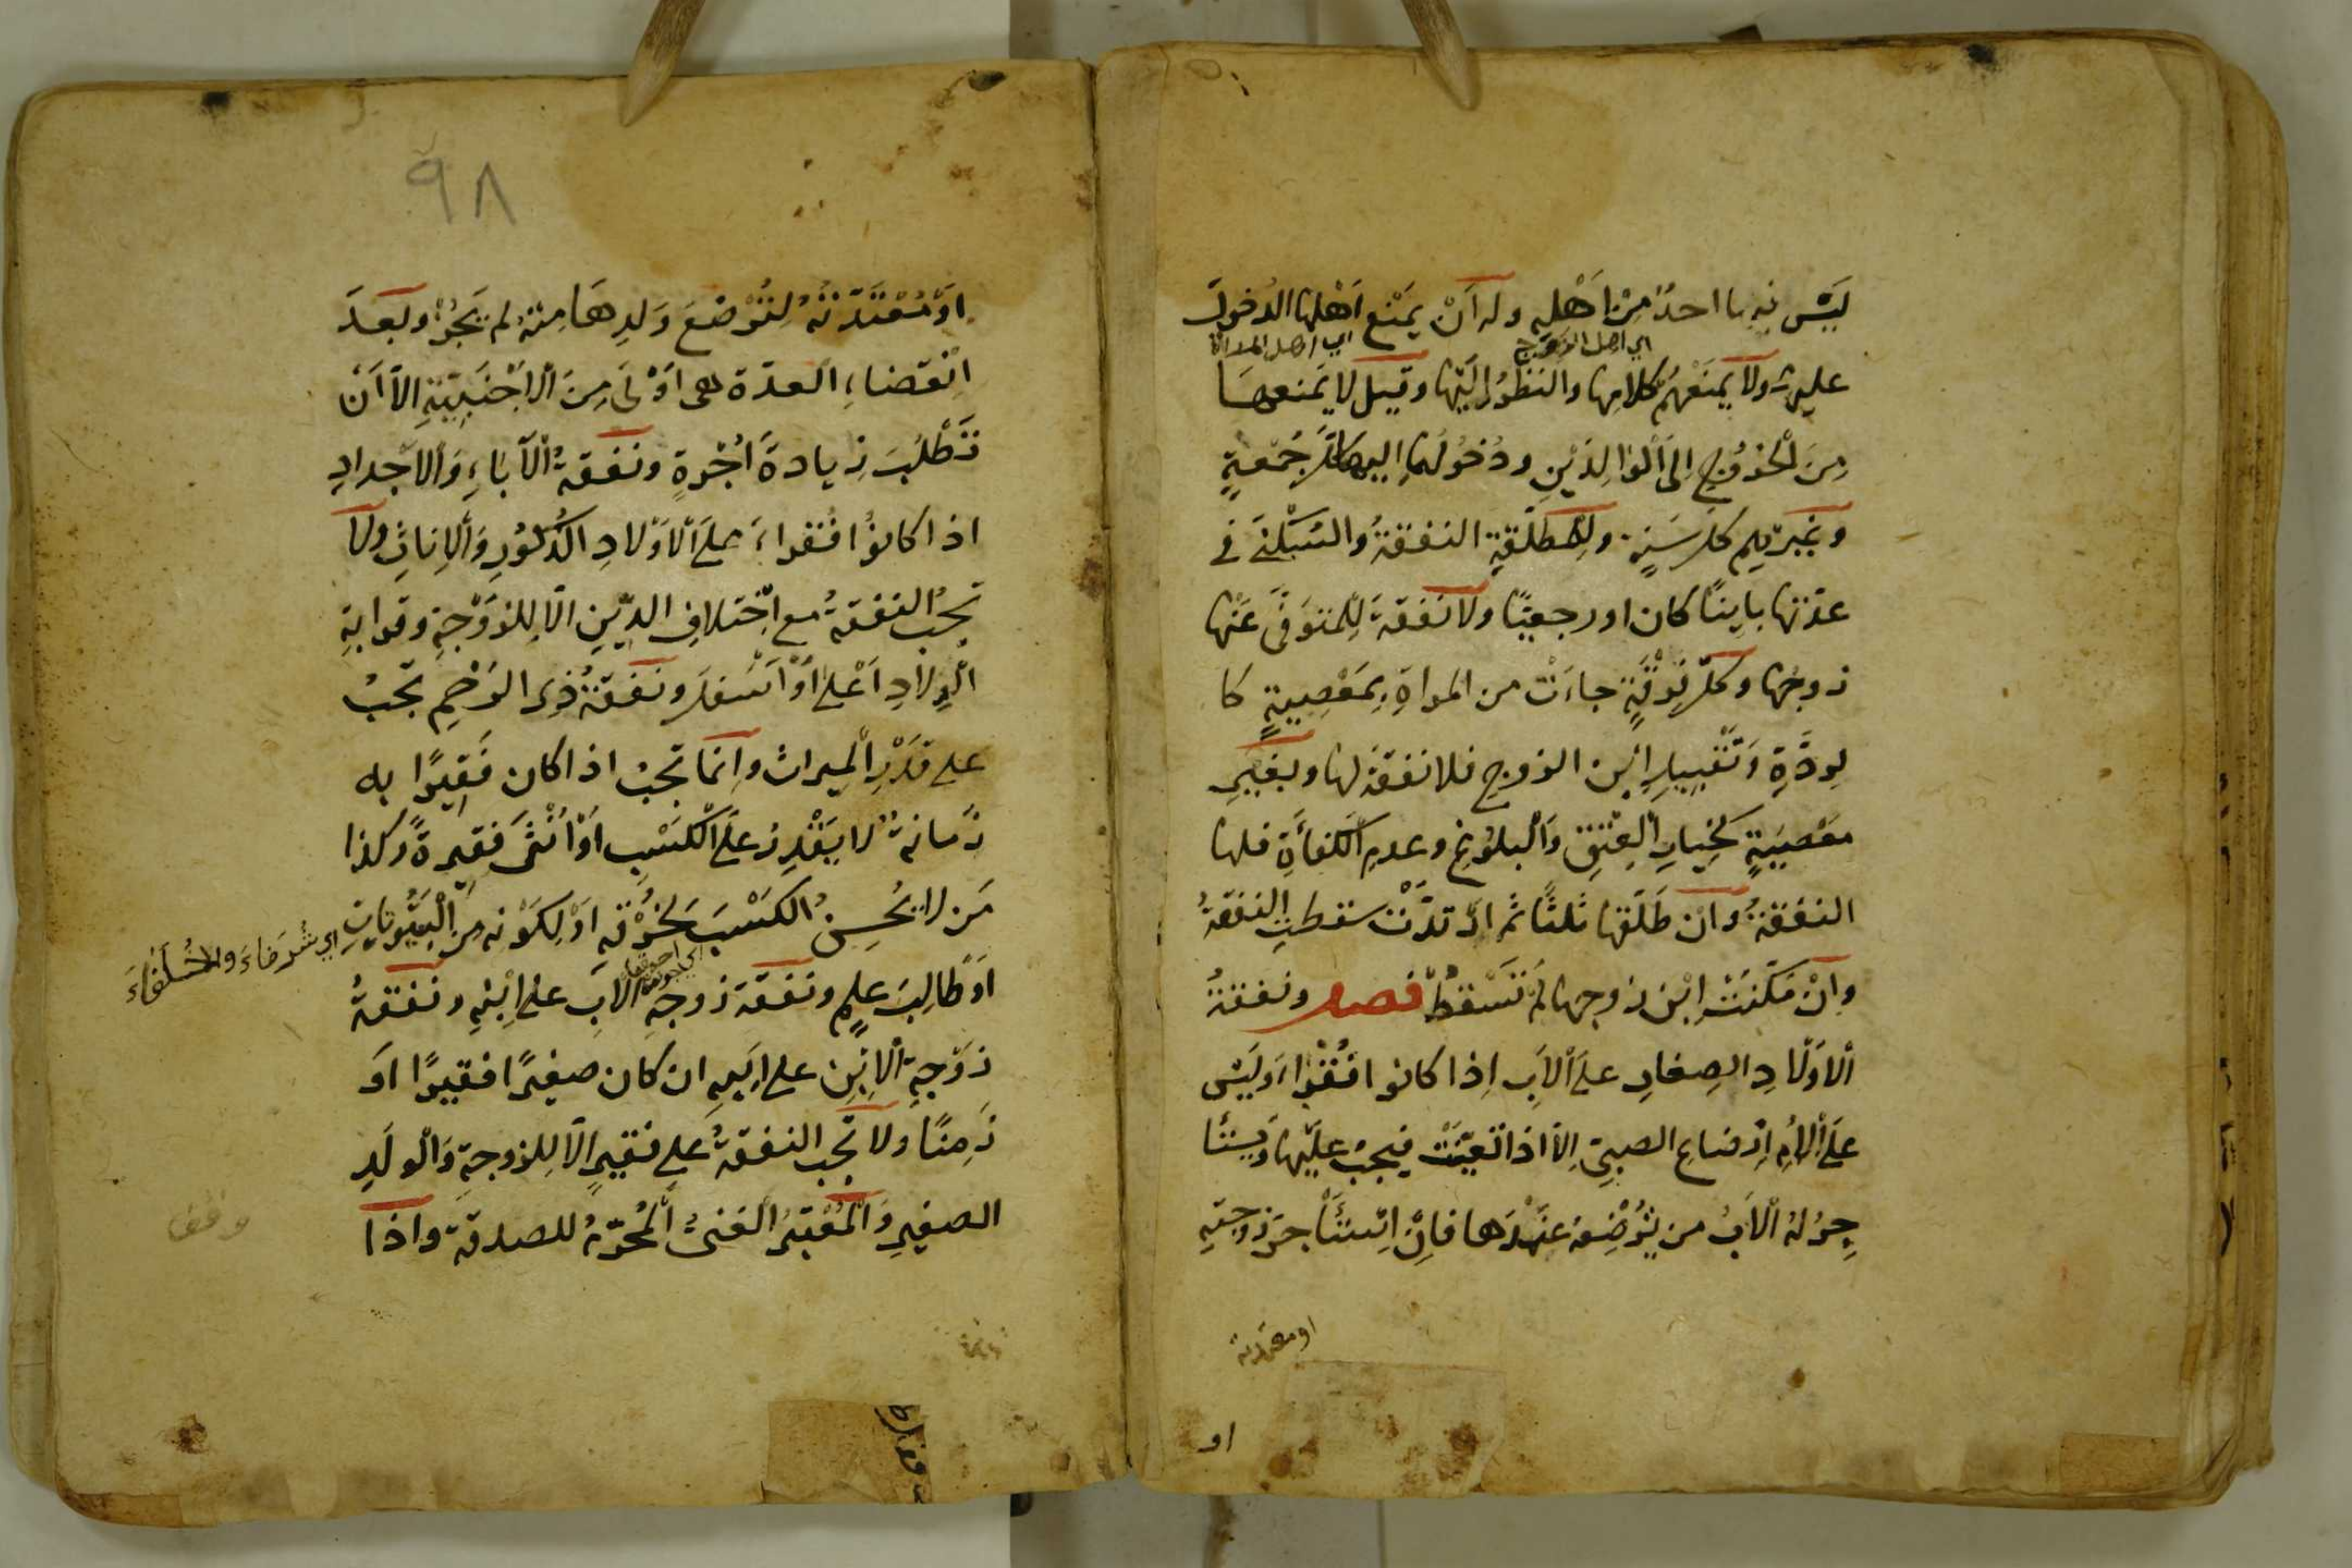 لَيْسَ فيها احدٌ مِنْ اَهْلِهِ وله اَنْ يَمْنَعَ اَهْلَها الدُخولَ
اي اهل الزوج
اي اهل المراة
عليها ولا يَمْنَعُهُمْ كلامها والنَظَرُ اِلَيْها وقيل لا يَمنعها
مِنَ الْخُرُوجِ اِلَى الْوالِدَيْنِ ودُخُولُهما اليها كلَّ جُمْعةٍ
وغَيْرِهم كلَّ سَنَةٍ ولِلْمطلَّقةِ النفقةُ والسُكْنَى في
عدّتها باينًا كان اورجعيًا ولا نفقةَ لِلْمتوَفَّى عَنْها
زوجُها وكلُّ فُرْقَةٍ جاءَتْ من المراةِ بِمَعْصِيةٍ كا
لرِدَّةِ وَتَقْبيلِ ابْنِ الزوجِ فلا نفقةَ لها وبغَيْرِ
مَعْصِيَةٍ كَخِيارِ الْعِتْقِ وَالْبلُوغِ وعدمِ الكفأَةِ فلها
النفقةُ وَان طَلَّقها ثلثًا ثم ارْتدَّتْ سقطتِ النفقةُ
وانْ مَكَّنَتْ ابْنَ زوجِها لم تَسْقُطْ فصل ونفقةُ
الْاَوْلادِ الصِغارِ علَى الْاَبِ اِذا كانوا فُقَراءَ ولَيْسَ
علَى الْاُمِّ اِرْضاعِ الصبيِّ اِلّا اذا تَعيّنَتْ فيجبُ عليْها ويَسْتَا
جِرُ لهُ الْاَبُ من يُرْضِعُه عنْدَها فاِنِ اسْتَأْجرَ زوجتِهِ
او معتدته
او
٩٨
اَوْ مُعْتَدّتَهُ لِتُرْضعَ وَلدِهَا مِنْهُ لم يَجُزْ وبَعدَ
انْقضاءِ العدّة هي اَوْلَى مِنَ الْاَجْنَبِيّةِ اِلّا اَنْ
تَطْلُبَ زيادةَ اُجْرةٍ ونفقةُ الْآباءِ وَالاجدادِ
اذا كانوُا فُقراءَ علَى الْاَوْلادِ الذُّكُورِ وَالْاِناثِ ولا
تجبُ النفقةُ مع اخْتلافِ الدّينِ اِلّا لِلزوْجةِ وقرابةِ
الْوِلادِ اَعْلَى اَوْ اَسْفلَ ونَفَقةُ ذِى الرَحْمِ تجبُ
على قدْرِ الْميراث وانما تجبُ اذا كان فَقِيرًا به
زَمانةٌ لا يَقْدِرُ علَى الْكَسْبِ اَوْ اُنْثَى فَقيرةً وكذا
مَن لا يُحْسِنُ الكَسْبَ لِخُرْقِهِ اَوْ لِكَوْنِه مِنَ الْبُيُوتاتِ
اي شُرَفاءَ
اي احمقه
اَوْ طَالِبَ علمٍ ونفقة زوجةِ الابِ على اِبْنِهِ ونفقةُ
زوْجةِ الْاِبْنِ على ابيهِ ان كان صغيرًا فقيرًا اَوْ
زَمِنًا ولا تجب النفقةُ على فقيرٍ اِلّا لِلزوجةِ وَالْولَدِ
الصغيرِ وَالْمُعْتبَرُ الغنىُ الْمُحرِّمُ للصدقة واذا
وقف